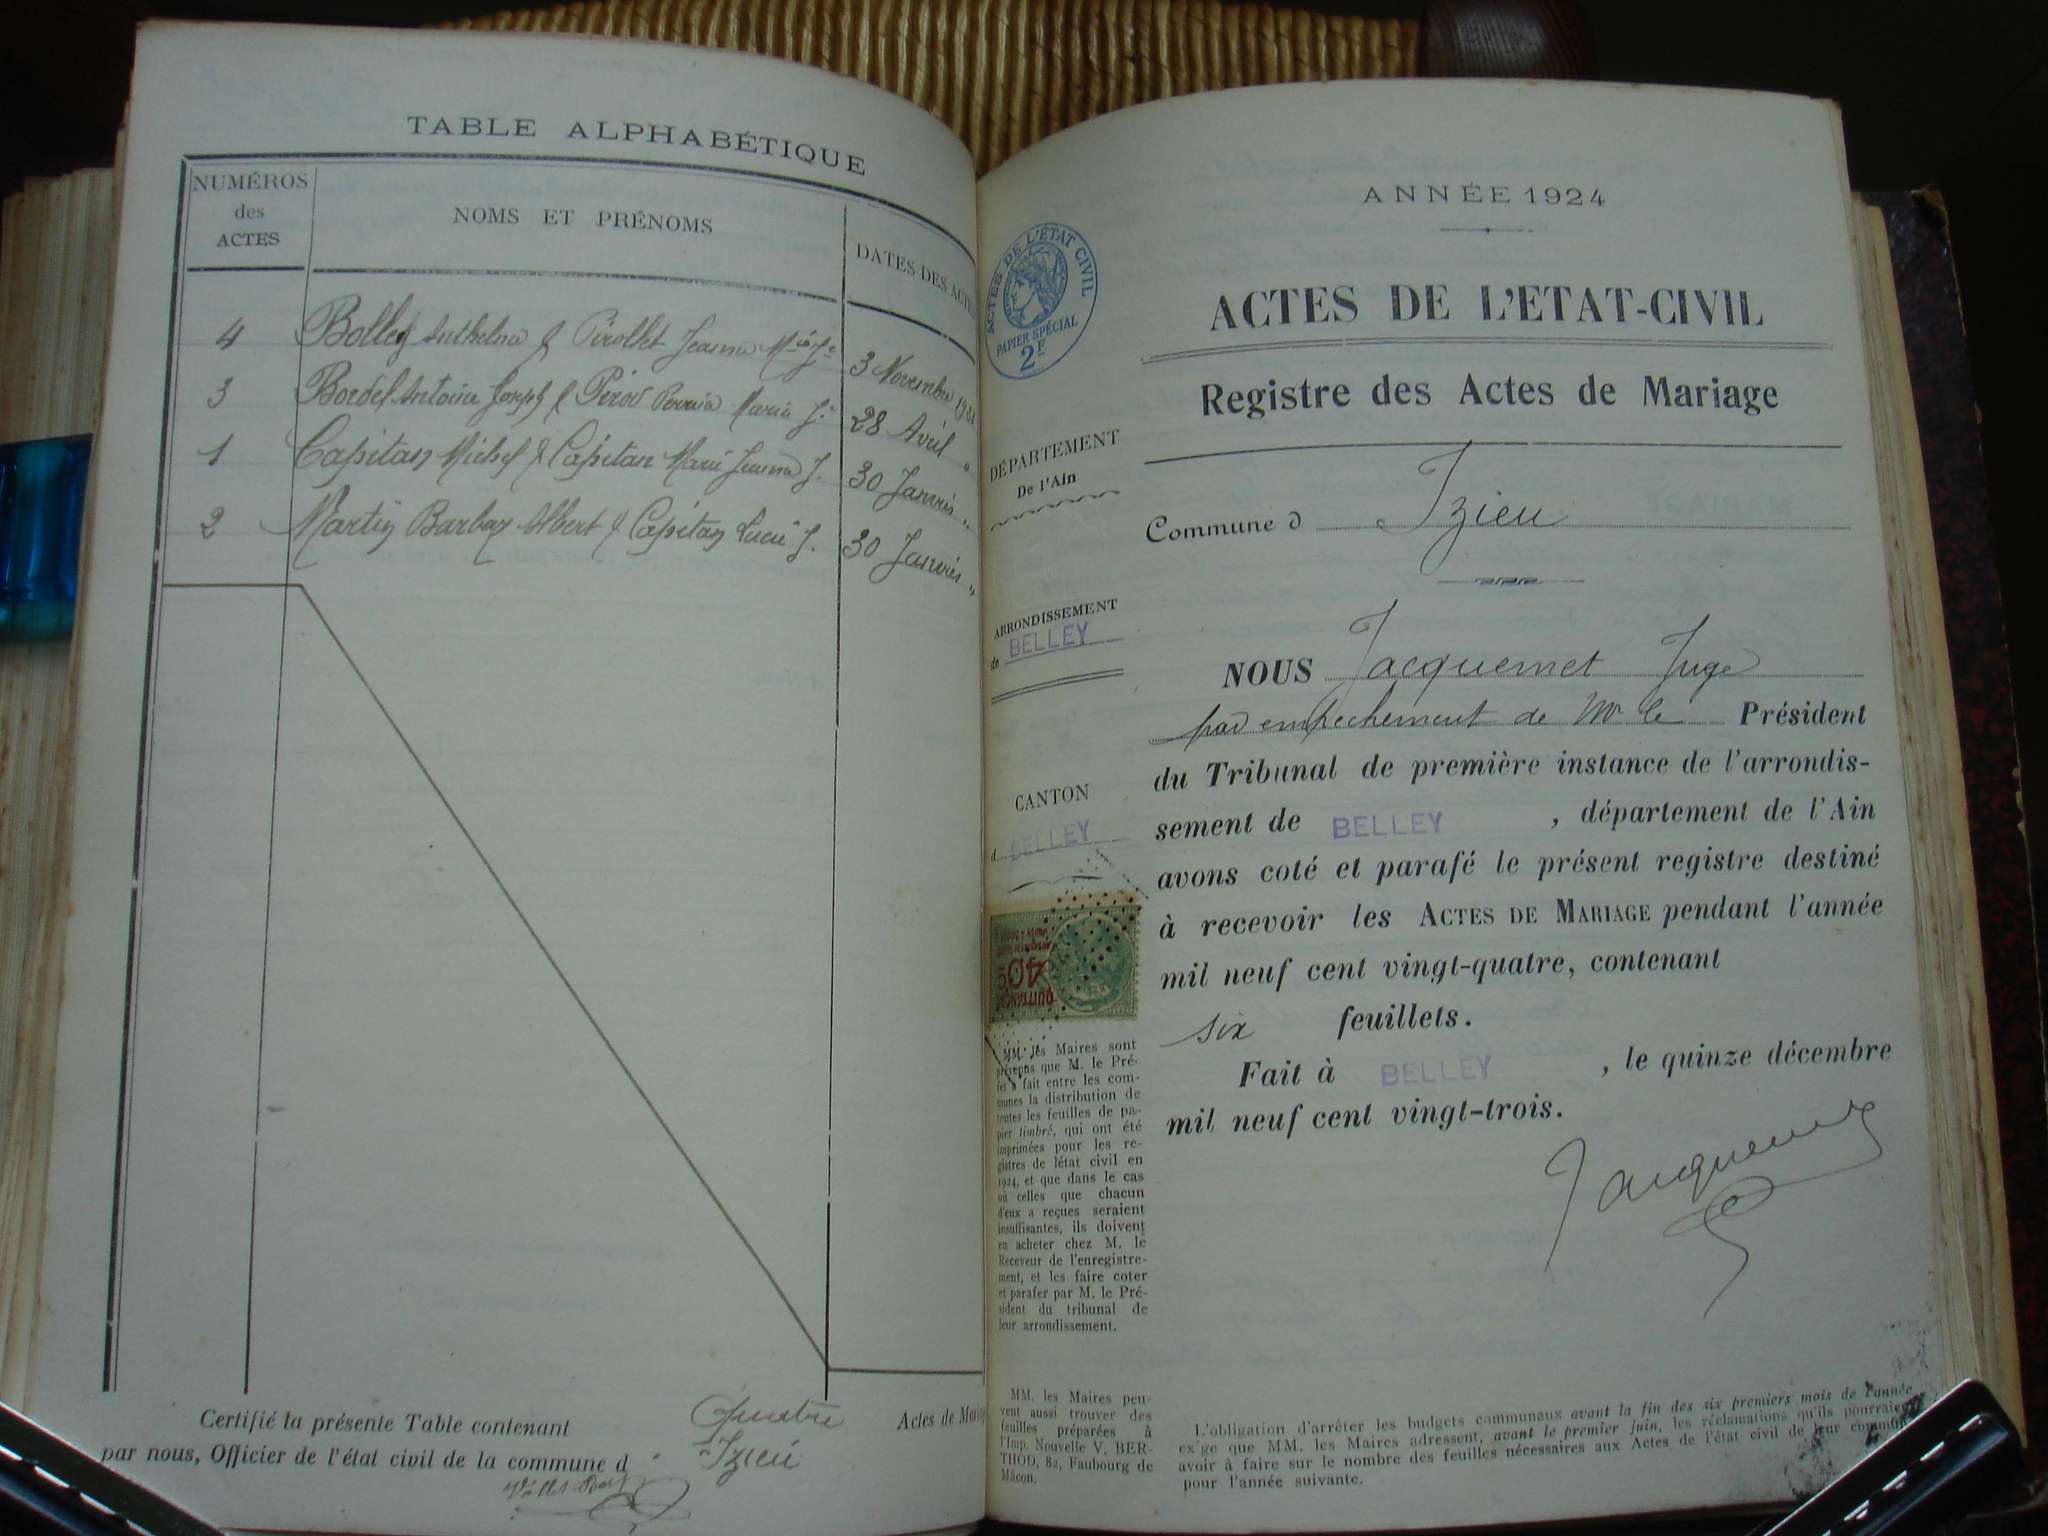 TABLE ALPHABÉTIQUE
NUMÉROS
des
ACTES
NOMS ET PRÉNOMS
DATES DES ACTES
4 Bolley Anthelme & Pirollet Jeanne Mie Je 3 Novembre
3 Bordel Antoine Joseph & Maria Je 28 Avril "
1 Capitan Michel & Capitan Marie Jeanne J. 30 Janvier "
2 Martin Barbaz Albert & Capitan Lucie J. 30 Janvier "
Certifié la présente Table contenant Quatre Actes de Mariage
par nous, Officier de l'état civil de la commune d Izieu
ANNÉE 1924
ACTES DE L'ÉTAT CIVIL
PAPIER SPÉCIAL
2F
ACTES DE L'ETAT-CIVIL
Registre des Actes de Mariage
DÉPARTEMENT
De l'Ain
Commune d Izieu
ARRONDISSEMENT
de BELLEY
CANTON
d BELLEY
NOUS Jacquemet Juge
par empechement de Mr le Président
du Tribunal de première instance de l'arrondis-
sement de BELLEY, département de l'Ain
avons coté et parafé le présent registre destiné
à recevoir les ACTES DE MARIAGE pendant l'année
mil neuf cent vingt-quatre, contenant
six feuillets.
Fait à BELLEY, le quinze décembre
mil neuf cent vingt-trois.
Jacquemet
QUITTANCES
40
MM. les Maires sont
prévenus que M. le Pré-
fet a fait entre les com-
munes la distribution de
toutes les feuilles de pa-
pier timbré, qui ont été
imprimées pour les re-
gistres de l'état civil en
1924, et que dans le cas
où celles que chacun
d'eux a reçues seraient
insuffisantes, ils doivent
en acheter chez M. le
Receveur de l'enregistre-
ment, et les faire coter
et parafer par M. le Pré-
sident du tribunal de
leur arrondissement.
MM. les Maires peu-
vent aussi trouver des
feuilles préparées à
l'Imp. Nouvelle V. BER-
THOD, 82, Faubourg de
Mâcon.
L'obligation d'arrêter les budgets communaux avant la fin des six premiers mois de l'année
exige que MM. les Maires adressent, avant le premier juin, les réclamations qu'ils pourraient
avoir à faire sur le nombre des feuilles nécessaires aux Actes de l'état civil de leur commune
pour l'année suivante.